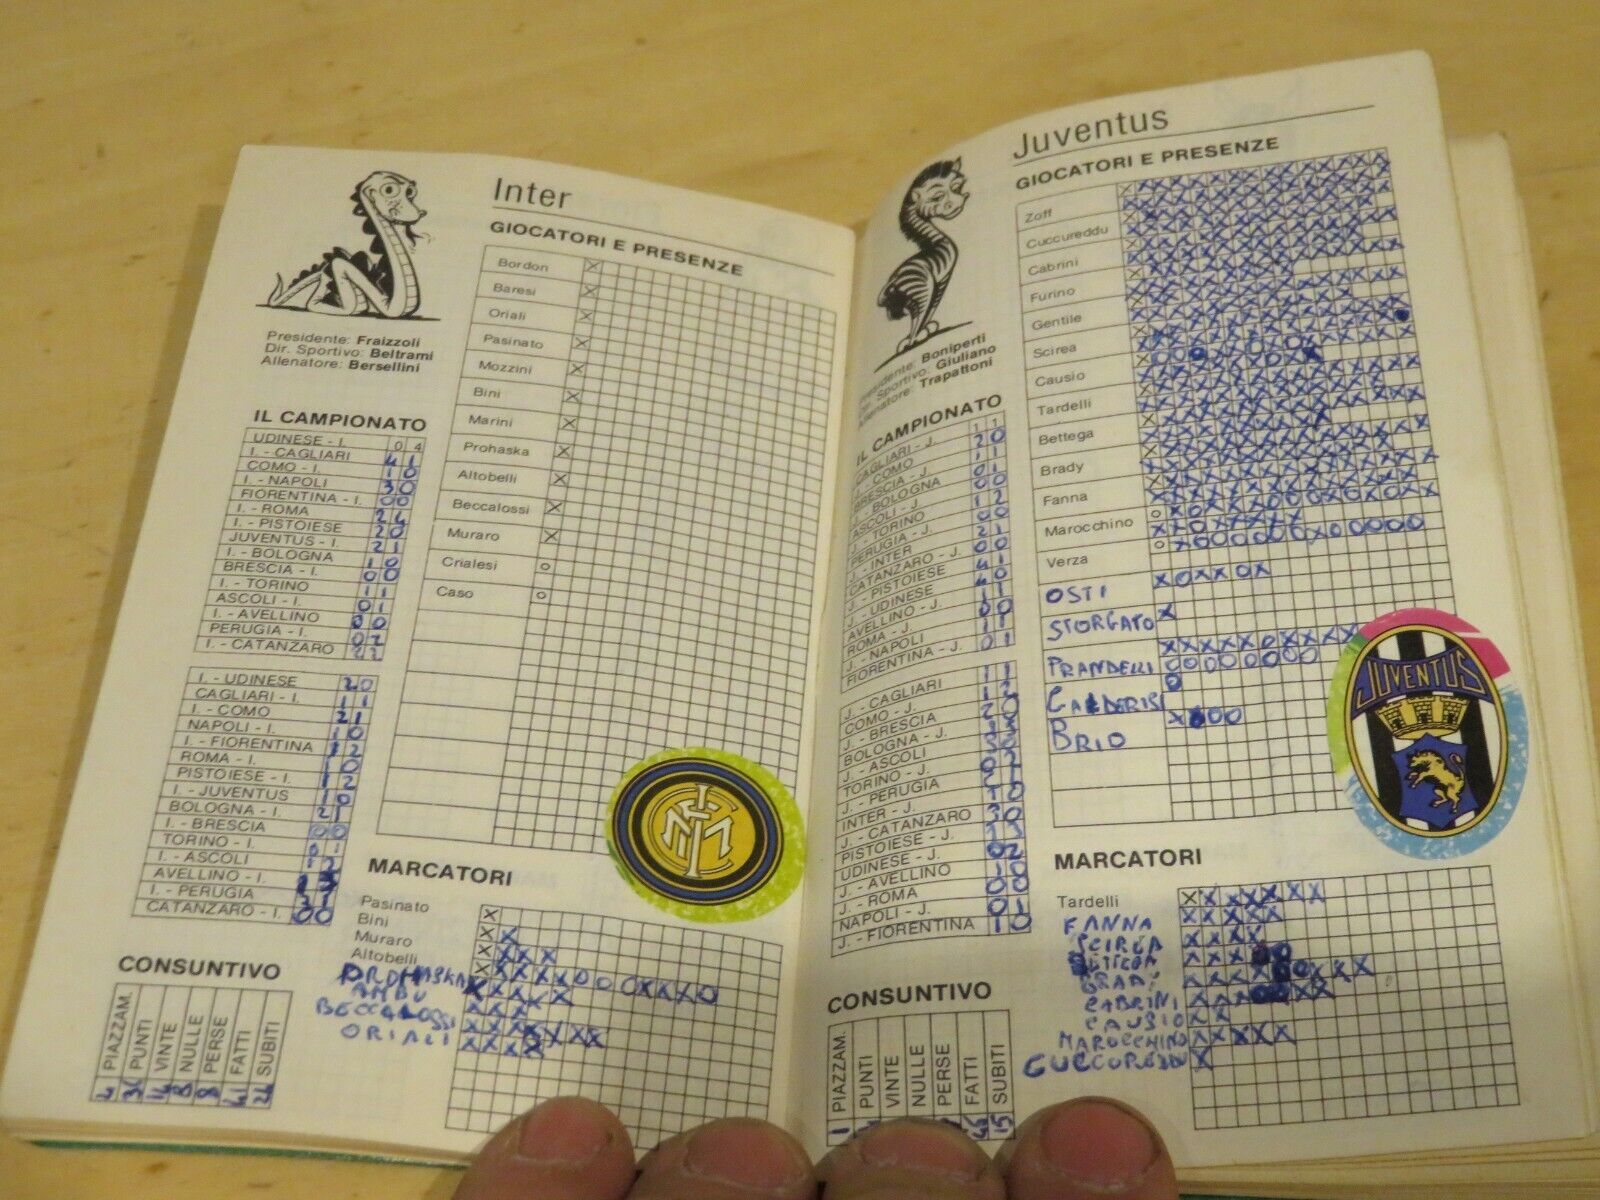 Inter
GIOCATORI E PRESENZE
Bordon
Baresi
Oriali
Pasinato
Mozzini
Bini
Marini
Prohaska
Altobelli
Beccalossi
Muraro
Crialesi
Caso
Presidente: Fraizzoli
Dir. Sportivo: Beltrami
Allenatore: Bersellini
IL CAMPIONATO
UDINESE - I. 0 4
I. - CAGLIARI 4 1
COMO - I. 1 0
I. - NAPOLI 3 0
FIORENTINA - I. 0 0
I. - ROMA 2 4
I. - PISTOIESE 2 0
JUVENTUS - I. 2 1
I. - BOLOGNA 1 0
BRESCIA - I. 0 0
I. - TORINO 1 1
ASCOLI - I. 0 1
I. - AVELLINO 0 0
PERUGIA - I. 0 2
I. - CATANZARO 2 2
I. - UDINESE 2 0
CAGLIARI - I. 1 1
I. - COMO 2 1
NAPOLI - I. 1 0
I. - FIORENTINA 1 2
ROMA - I. 1 0
PISTOIESE - I. 1 2
I. - JUVENTUS 1 0
BOLOGNA - I. 2 1
I. - BRESCIA 0 0
TORINO - I. 0 1
I. - ASCOLI 1 2
AVELLINO - I.
I. - PERUGIA 3 1
CATANZARO - I. 0 0
MARCATORI
Pasinato
Bini
Muraro
Altobelli
PROHASKA
AMBU
BECCALOSSI
ORIALI
CONSUNTIVO
PIAZZAM.
PUNTI
VINTE
NULLE
PERSE
FATTI
SUBITI
4 36 14 8 8 41 24
Juventus
GIOCATORI E PRESENZE
Zoff
Cuccureddu
Cabrini
Furino
Gentile
Scirea
Causio
Tardelli
Bettega
Brady
Fanna
Marocchino
Verza
OSTI
STORGATO
PRANDELLI
GALDERISI
BRIO
JUVENTUS
Presidente: Boniperti
Dir. Sportivo: Giuliano
Allenatore: Trapattoni
IL CAMPIONATO
CAGLIARI - J. 1 1
J. - COMO 2 0
BRESCIA - J. 1 1
J. - BOLOGNA 0 1
ASCOLI - J. 0 0
J. - TORINO 1 2
PERUGIA - J. 0 0
J. - INTER 2 1
CATANZARO - J. 0 0
J. - PISTOIESE 4 1
J. - UDINESE 4 0
AVELLINO - J. 1 1
ROMA - J. 0 0
J. - NAPOLI 1 1
FIORENTINA - J. 0 1
J. - CAGLIARI 1 1
COMO - J. 1 2
J. - BRESCIA
BOLOGNA - J.
J. - ASCOLI
TORINO - J.
J. - PERUGIA
INTER - J. 1 0
J. - CATANZARO 3 0
PISTOIESE - J. 1 3
UDINESE - J. 0 2
J. - AVELLINO 1 0
J. - ROMA 0 0
NAPOLI - J. 0 1
J. - FIORENTINA 1 0
MARCATORI
Tardelli
FANNA
SCIREA
BETTEGA
BRADY
CABRINI
CAUSIO
MAROCCHINO
CUCCUREDDU
CONSUNTIVO
PIAZZAM.
PUNTI
VINTE
NULLE
PERSE
FATTI
SUBITI
1 46 15